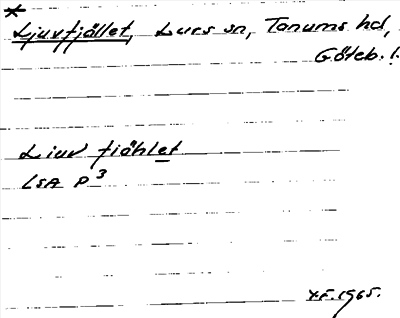 *
Ljuvfjället, Lurs sn, Tanums hd,
Göteb. !
Liuv fiählet
LSA P3
Y.F. 1965.